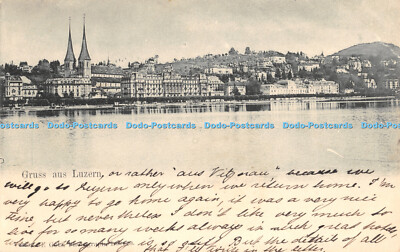 Dodo-Postcards Dodo-Postcards Dodo-Postcards Dodo-Postcards
Gruss aus Luzern, or rather "aus Vitznau" because we
will go to Luzern only when we return home. I'm
very happy to go home again, it was a very nice
time, but nevertheless I don't like very much to
live for so many weeks always in much great hotels
here every body is But the details of all